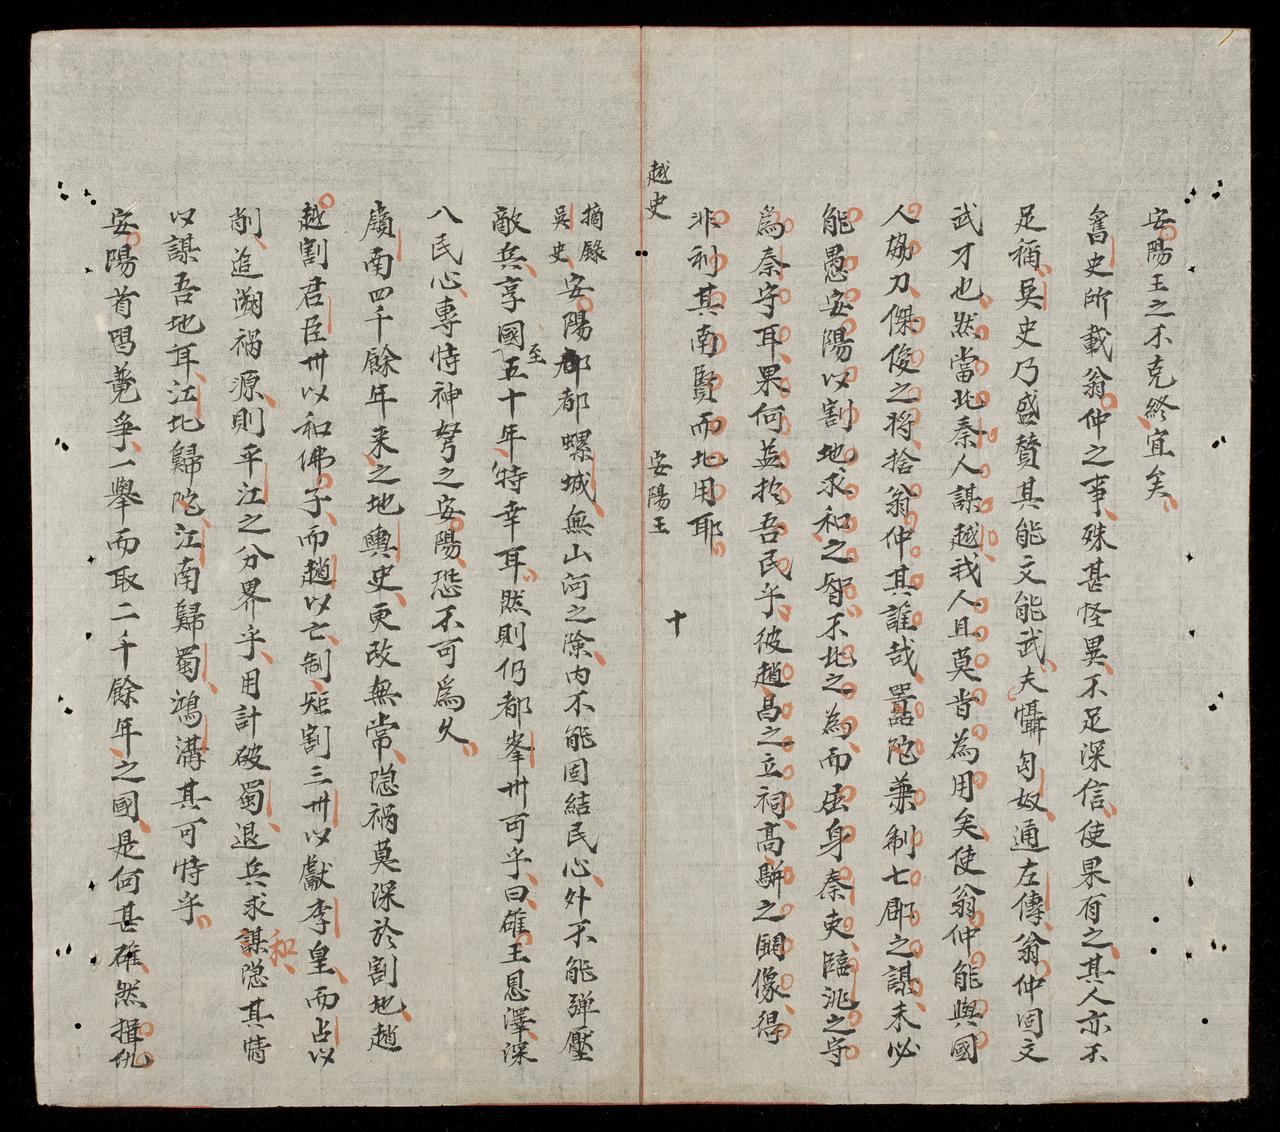 安陽王之不克終宜矣
舊史所載翁仲之事殊甚怪異不足深信使果有之其人亦不
足稱吳史乃盛贊其能文能武夫懾匈奴通左傳翁仲固文
武才也然當此秦人謀越我人且莫肯為用矣使翁仲能與國
人協力傑俊之將捨翁仲其誰哉嚚陀兼制七郡之謀未必
能愚安陽以割地求和之智不此之為而屈身秦吏臨洮之守
為秦守耳果何益於吾民乎彼趙昌之立祠高駢之嗣像得
非利其南賢而北用耶
越史
安陽王
十
摘錄
吳史
安陽都都螺城無山河之險內不能固結民心外不能彈壓
敵兵享國至五十年特幸耳然則仍都峯州可乎曰雄王恩澤深
入民心專恃神弩之安陽恐不可為久
嶺南四千餘年来之地輿史更改無常隐禍莫深於割地趙
越割君臣州以和佛子而趙以亡制矩割三州以獻李皇而占以
削追溯禍源則平江之分界乎用計破蜀退兵求和謀隐其情
以謀吾地耳江北歸陀江南歸蜀鴻溝其可恃乎
安陽首唱羗爭一舉而取二千餘年之國是何甚雄然揖仇